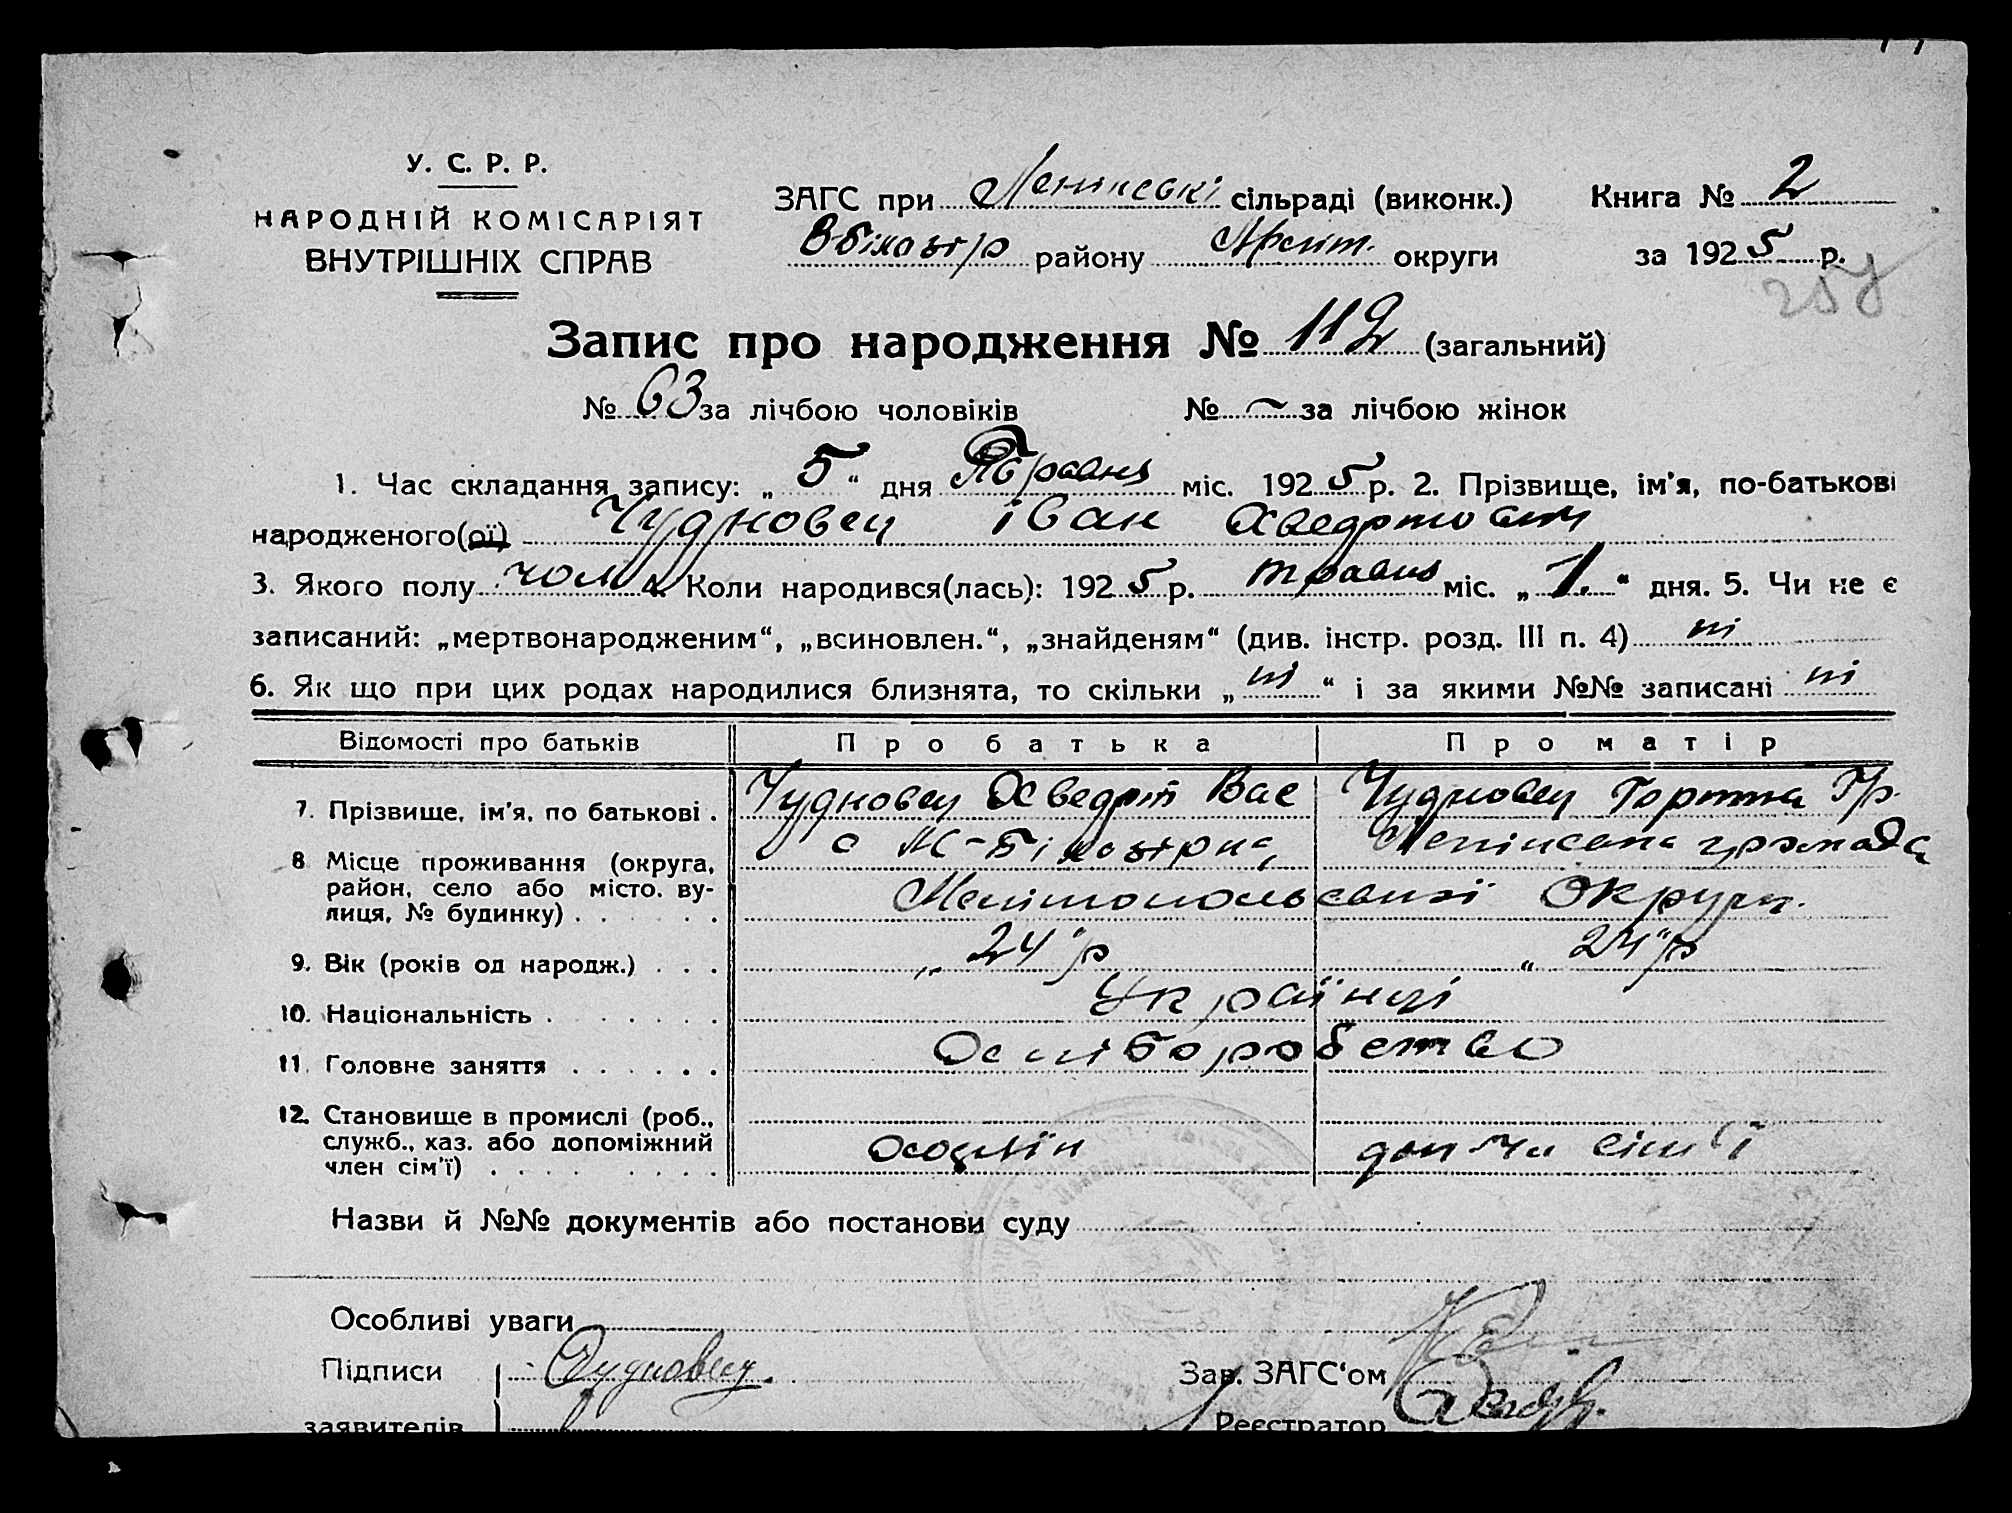 У. С. Р. Р.
НАРОДНІЙ КОМІСАРІЯТ
ВНУТРІШНІХ СПРАВ
ЗАГС при Ленінські сільраді (виконк.)
району округи
Книга № 2
за 1925 р.
257
Запис про народження № 112 (загальний)
№ 63 за лічбою чоловіків № – за лічбою жінок
1. Час складання запису: „ 5 “ дня Травня міс. 1925 р. 2. Прізвище, ім'я, по-батькові
народженого(ої) Чудновец Іван
3. Якого полу чол 4. Коли народився(лась): 1925 р. травня міс. „ 1. “ дня. 5. Чи не є
записаний: „мертвонародженим“, „всиновлен.“, „знайденям“ (див. інстр. розд. III п. 4) ні
6. Як що при цих родах народилися близнята, то скільки „ ні “ і за якими №№ записані ні
Відомості про батьків Про батька Про матір
7. Прізвище, ім'я, по батькові . Чудновец Вас Чудновец Гр.
8 Місце проживання (округа, район, село або місто, вулиця, № будинку) . . . . . . с М-Білозірка, громада
Мелітопольської Округи.
9. Вік (років од народж.) . . . „ 24 “ р „ 24 “ р
10. Національність . . . . . . . Українці
11. Головне заняття . . . . . . Хліборобство
12. Становище в промислі (роб., служб., хаз. або допоміжний член сім'ї) . . . . . . . . хозяїн доп чл сім'ї
Назви й №№ документів або постанови суду
Особливі уваги
Підписи Чудновец.
заявителів
Зав. ЗАГС'ом
Реєстратор